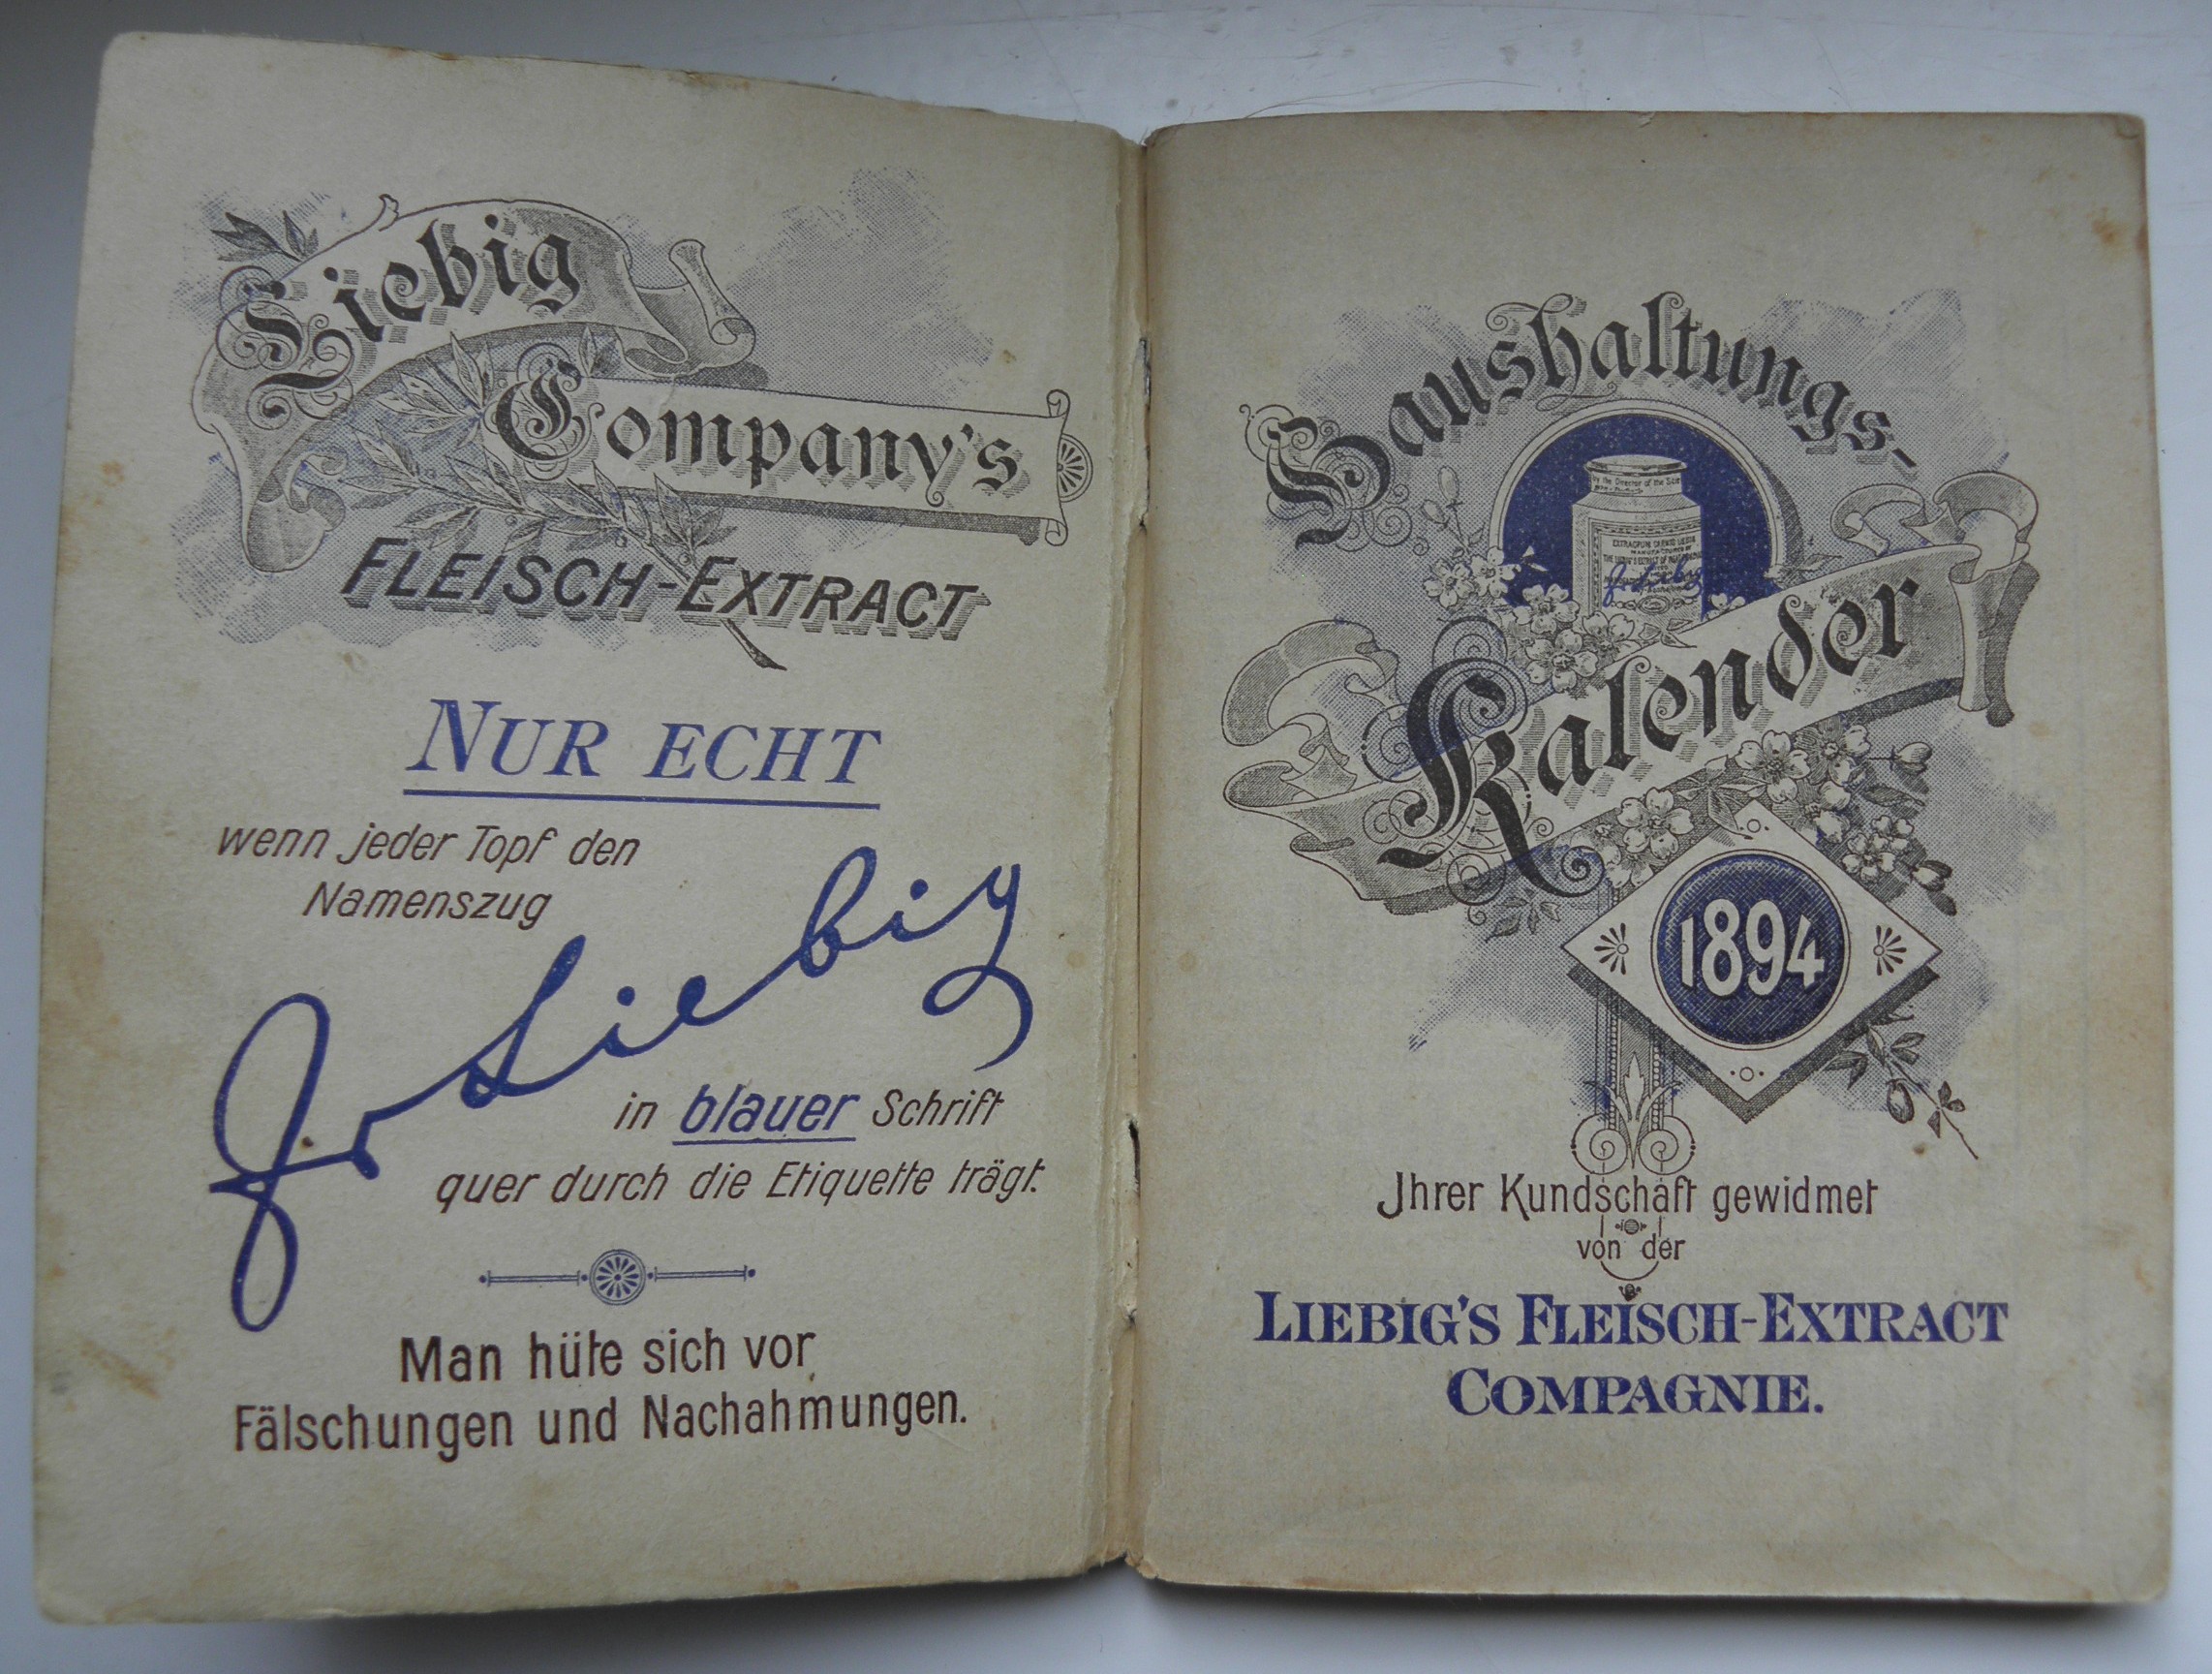 Liebig
Company's
FLEISCH-EXTRACT
NUR ECHT
wenn jeder Topf den
Namenszug
Jv Liebig
in blauer Schrift
quer durch die Etiquette trägt.
Man hüte sich vor
Fälschungen und Nachahmungen.
Haushaltungs-
by the Director of the
EXTRACTUM CARNIS LIEBIG
MANUFACTURED BY
Kalender
1894
Jhrer Kundschaft gewidmet
von der
LIEBIG'S FLEISCH-EXTRACT
COMPAGNIE.